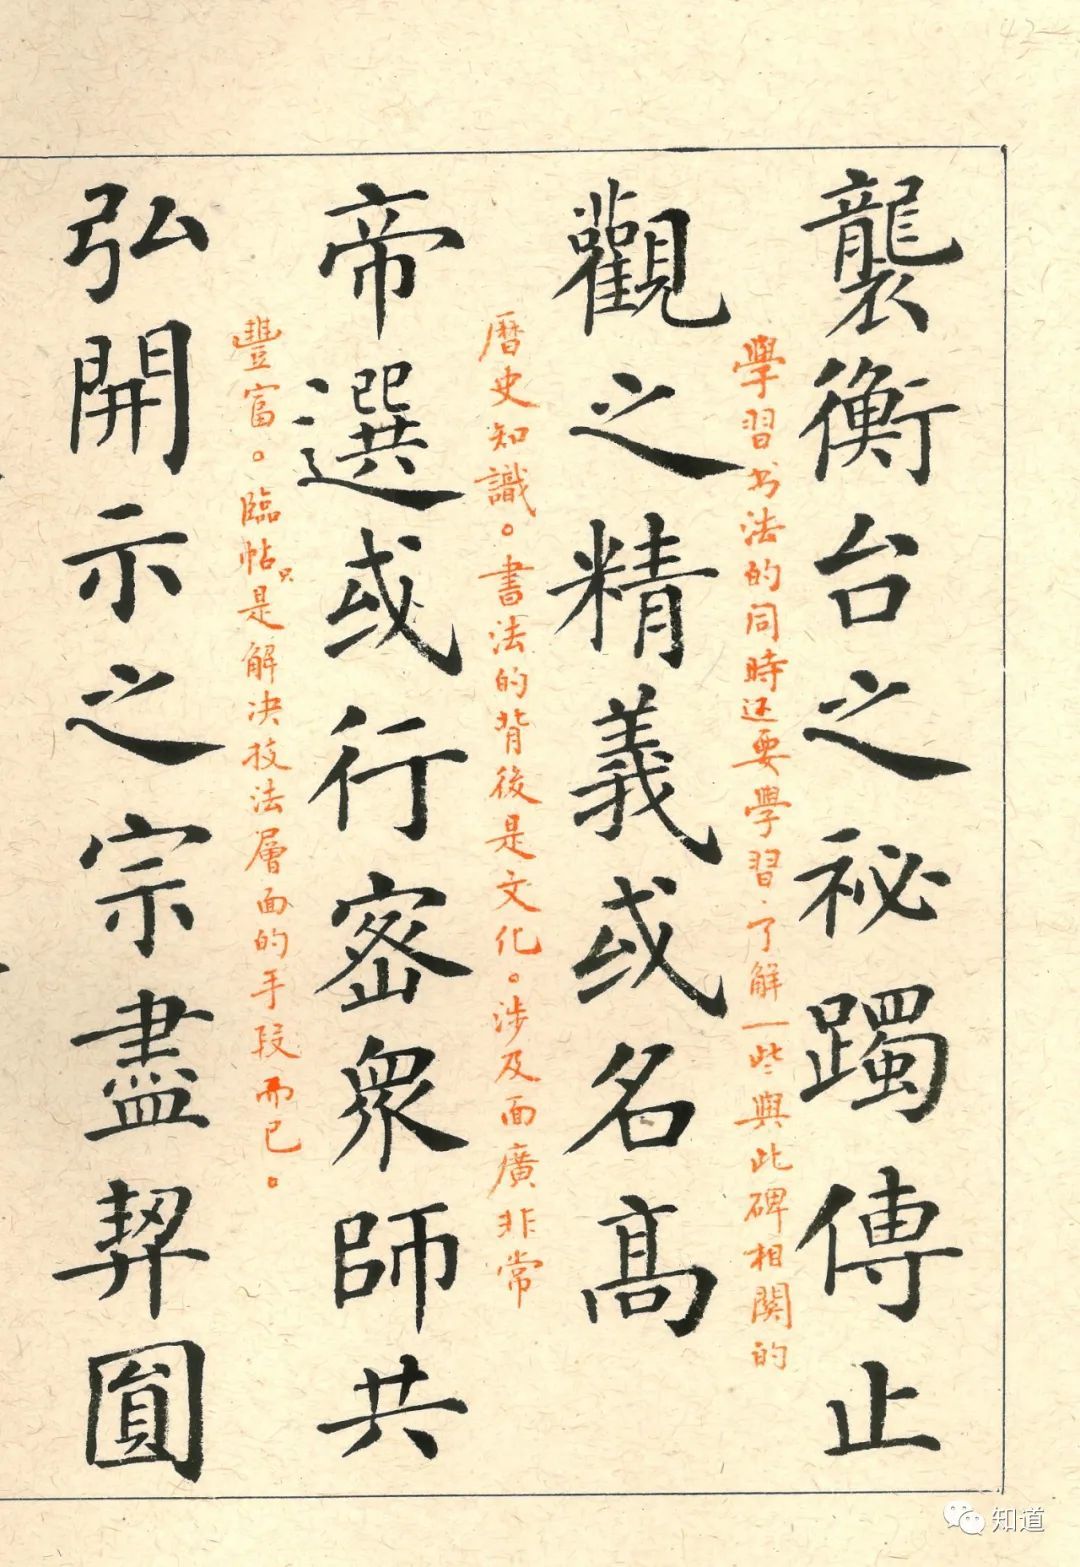 襲衡台之祕躅傳止
學習书法的同時还要學習、了解一些與此碑相関的
觀之精義或名高
曆史知識。書法的背後是文化。涉及面廣非常
帝選或行密衆師共
豐富。臨帖只是解决技法層面的手段而已。
弘開示之宗盡契圓
知道